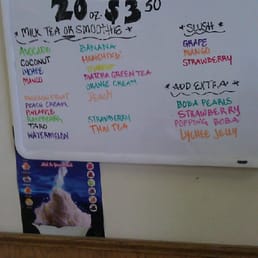 20 oz $3.50
* MILK TEA OR SMOOTHIE *
AVOCADO
COCONUT
LYCHEE
MANGO
PASSIONFRUIT
PEACH CREAM
PINEAPPLE
RASPBERRY
TARO
WATERMELON
BANANA
HONEYDEW
MATCHA GREEN TEA
ORANGE CREAM
STRAWBERRY
THAI TEA
* SLUSH *
GRAPE
MANGO
STRAWBERRY
* ADD EXTRA *
BOBA PEARLS
STRAWBERRY
POPPING BOBA
LYCHEE JELLY